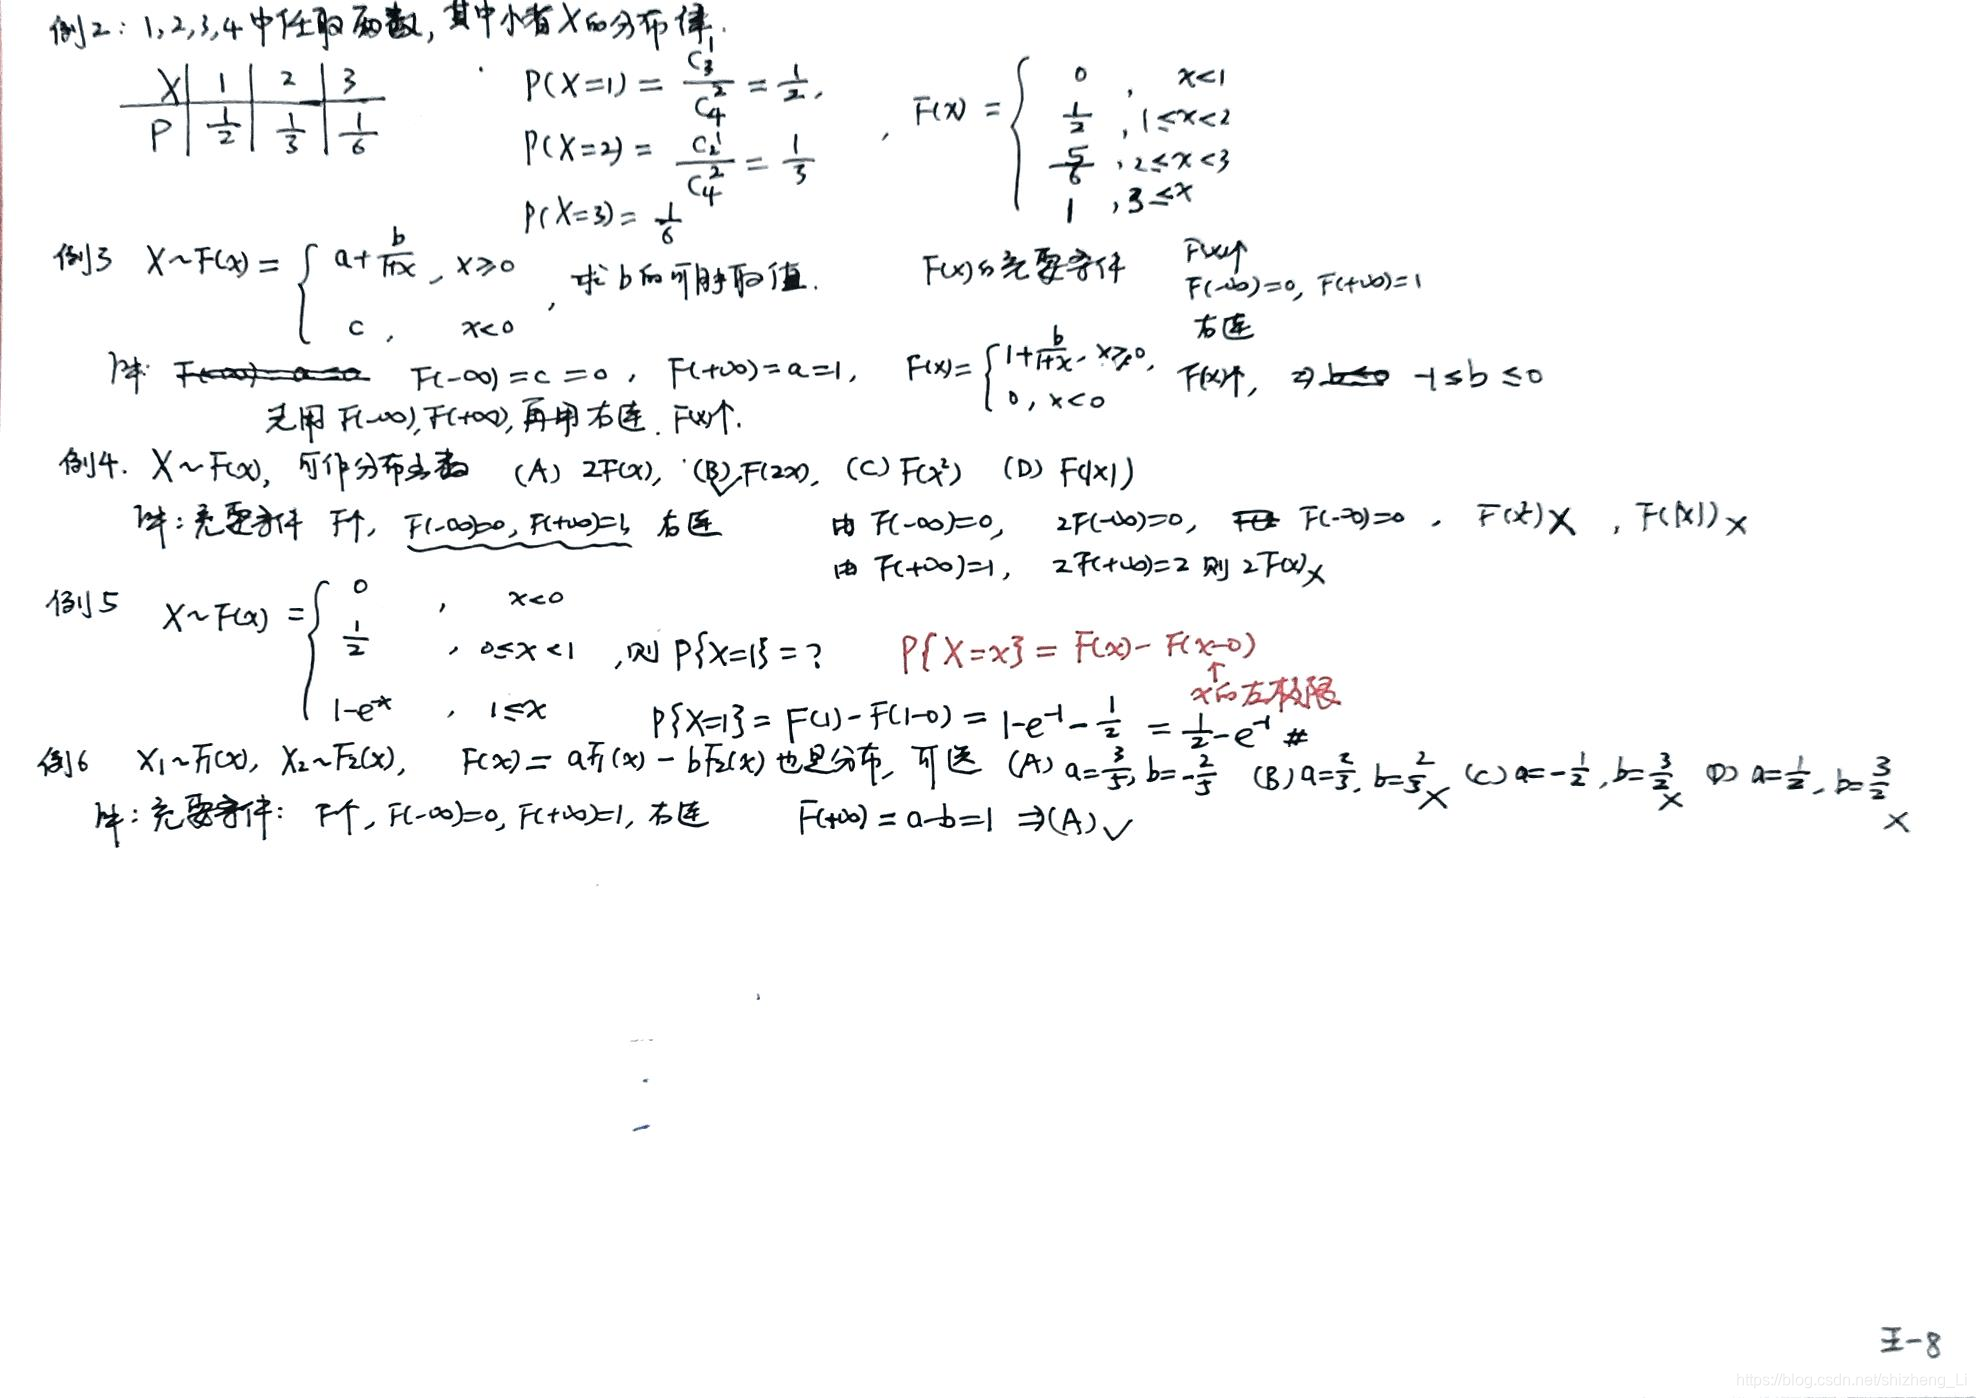 例2: 1,2,3,4中任取两数, 其中小者X的分布律.
X | 1 | 2 | 3
P | 1/2 | 1/3 | 1/6
P(X=1) = C₃¹/C₄² = 1/2,
P(X=2) = C₂¹/C₄² = 1/3
P(X=3) = 1/6
, F(x) = { 0 , x<1
1/2 , 1≤x<2
5/6 , 2≤x<3
1 , 3≤x
例3 X~F(x) = { a+b/(1+x), x≥0
c, x<0
, 求b的可能取值.
F(x)的充要条件 F(x)↑
F(-∞)=0, F(+∞)=1
右连
解: F(-∞)=c=0, F(+∞)=a=1, F(x)= { 1+b/(1+x), x≥0,
0, x<0
F(x)↑, ⇒ -1≤b≤0
先用F(-∞), F(+∞), 再用右连. F(x)↑.
例4. X~F(x), 可作分布函数 (A) 2F(x), (B)✓ F(2x), (C) F(x²) (D) F(|x|)
解: 充要条件 F个, F(-∞)=0, F(+∞)=1, 右连 由 F(-∞)=0, 2F(-∞)=0, F(-∞)=0, F(x²)× , F(|x|)×
由 F(+∞)=1, 2F(+∞)=2 则 2F(x)×
例5 X~F(x) = { 0 , x<0
1/2 , 0≤x<1
1-e⁻ˣ , 1≤x
,则 P{X=1}=?
P{X=x} = F(x)-F(x-0)
↑
x的左极限
P{X=1} = F(1)-F(1-0) = 1-e⁻¹-1/2 = 1/2-e⁻¹ #
例6 X₁~F₁(x), X₂~F₂(x), F(x)=aF₁(x)-bF₂(x)也是分布, 可选 (A) a=3/5, b=-2/5 (B) a=2/3, b=2/3 × (C) a=-1/2, b=3/2 × (D) a=1/2, b=3/2 ×
解: 充要条件: F个, F(-∞)=0, F(+∞)=1, 右连 F(+∞)=a-b=1 ⇒(A)✓
王-8
https://blog.csdn.net/shizheng_Li